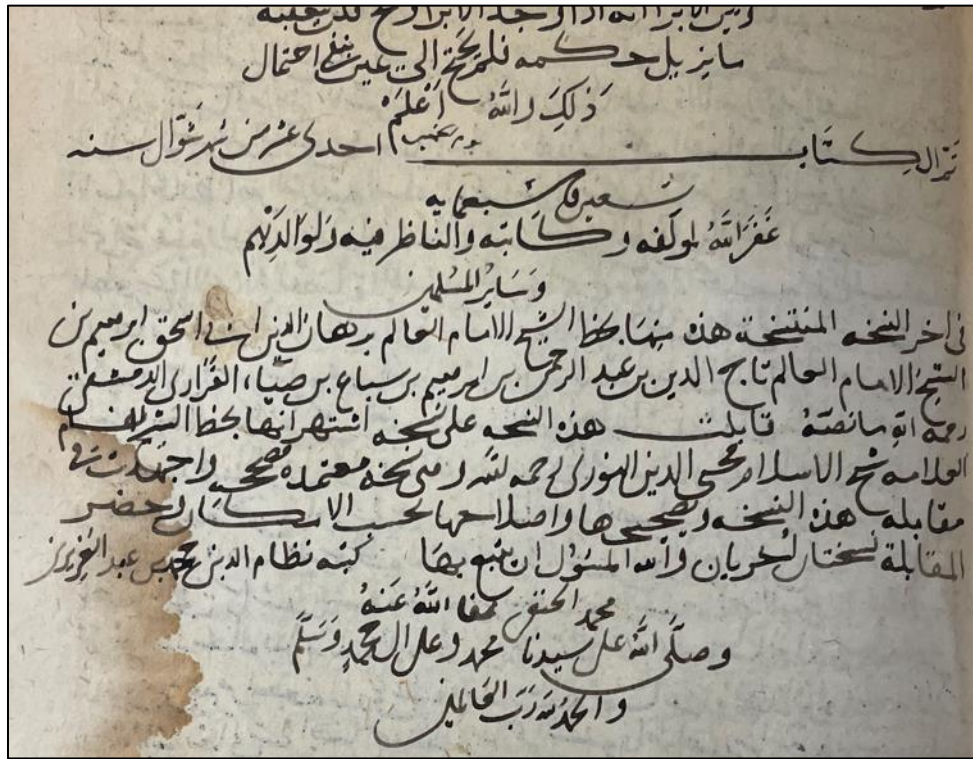 وبين الابراانه اذا وجد الابراوحـ قد يعقبه
ما يزيل حكمه فلم يحتج الى عين ينفي احتمال
ذلك والله اعلم
تم الكتاب احدى عشر من شهر شوال سنه
سبعمايه
غفر الله لمولفه وكاتبه والناظر فيه ولوالديهم
وساير المسلمين
فى اخر النسخه المنتسخة هذه منها بخط الشيخ الامام العالم برهان الدين ابى اسحق ابرهيم بن
الشيخ الامام العالم تاج الدين بن عبد الرحمن بن ابرهيم بن سباع بن ضيا، الفزارى الدمشقى
رحمه الله ما نصته قابلت هذه النسخه على نسخه اشتهر انها بخط الشيخ الامام
العلامه شيخ الاسلام محيى الدين النووى رحمه الله وهى نسخه معتمده مصححه واجتهدت فى
مقابله هذه النسخه وتصحيحها واصلاحها بحسب الامكان وحضر
المقابلة نسختان اخريان والله المسؤل ان ينفع بها كتبه نظام الدين محمد بن عبد العزيز بن
محمد الحنفى عفا الله عنه
وصلى الله على سيدنا محمد وعلى ال محمد وسلم
والحمد لله رب العالمين